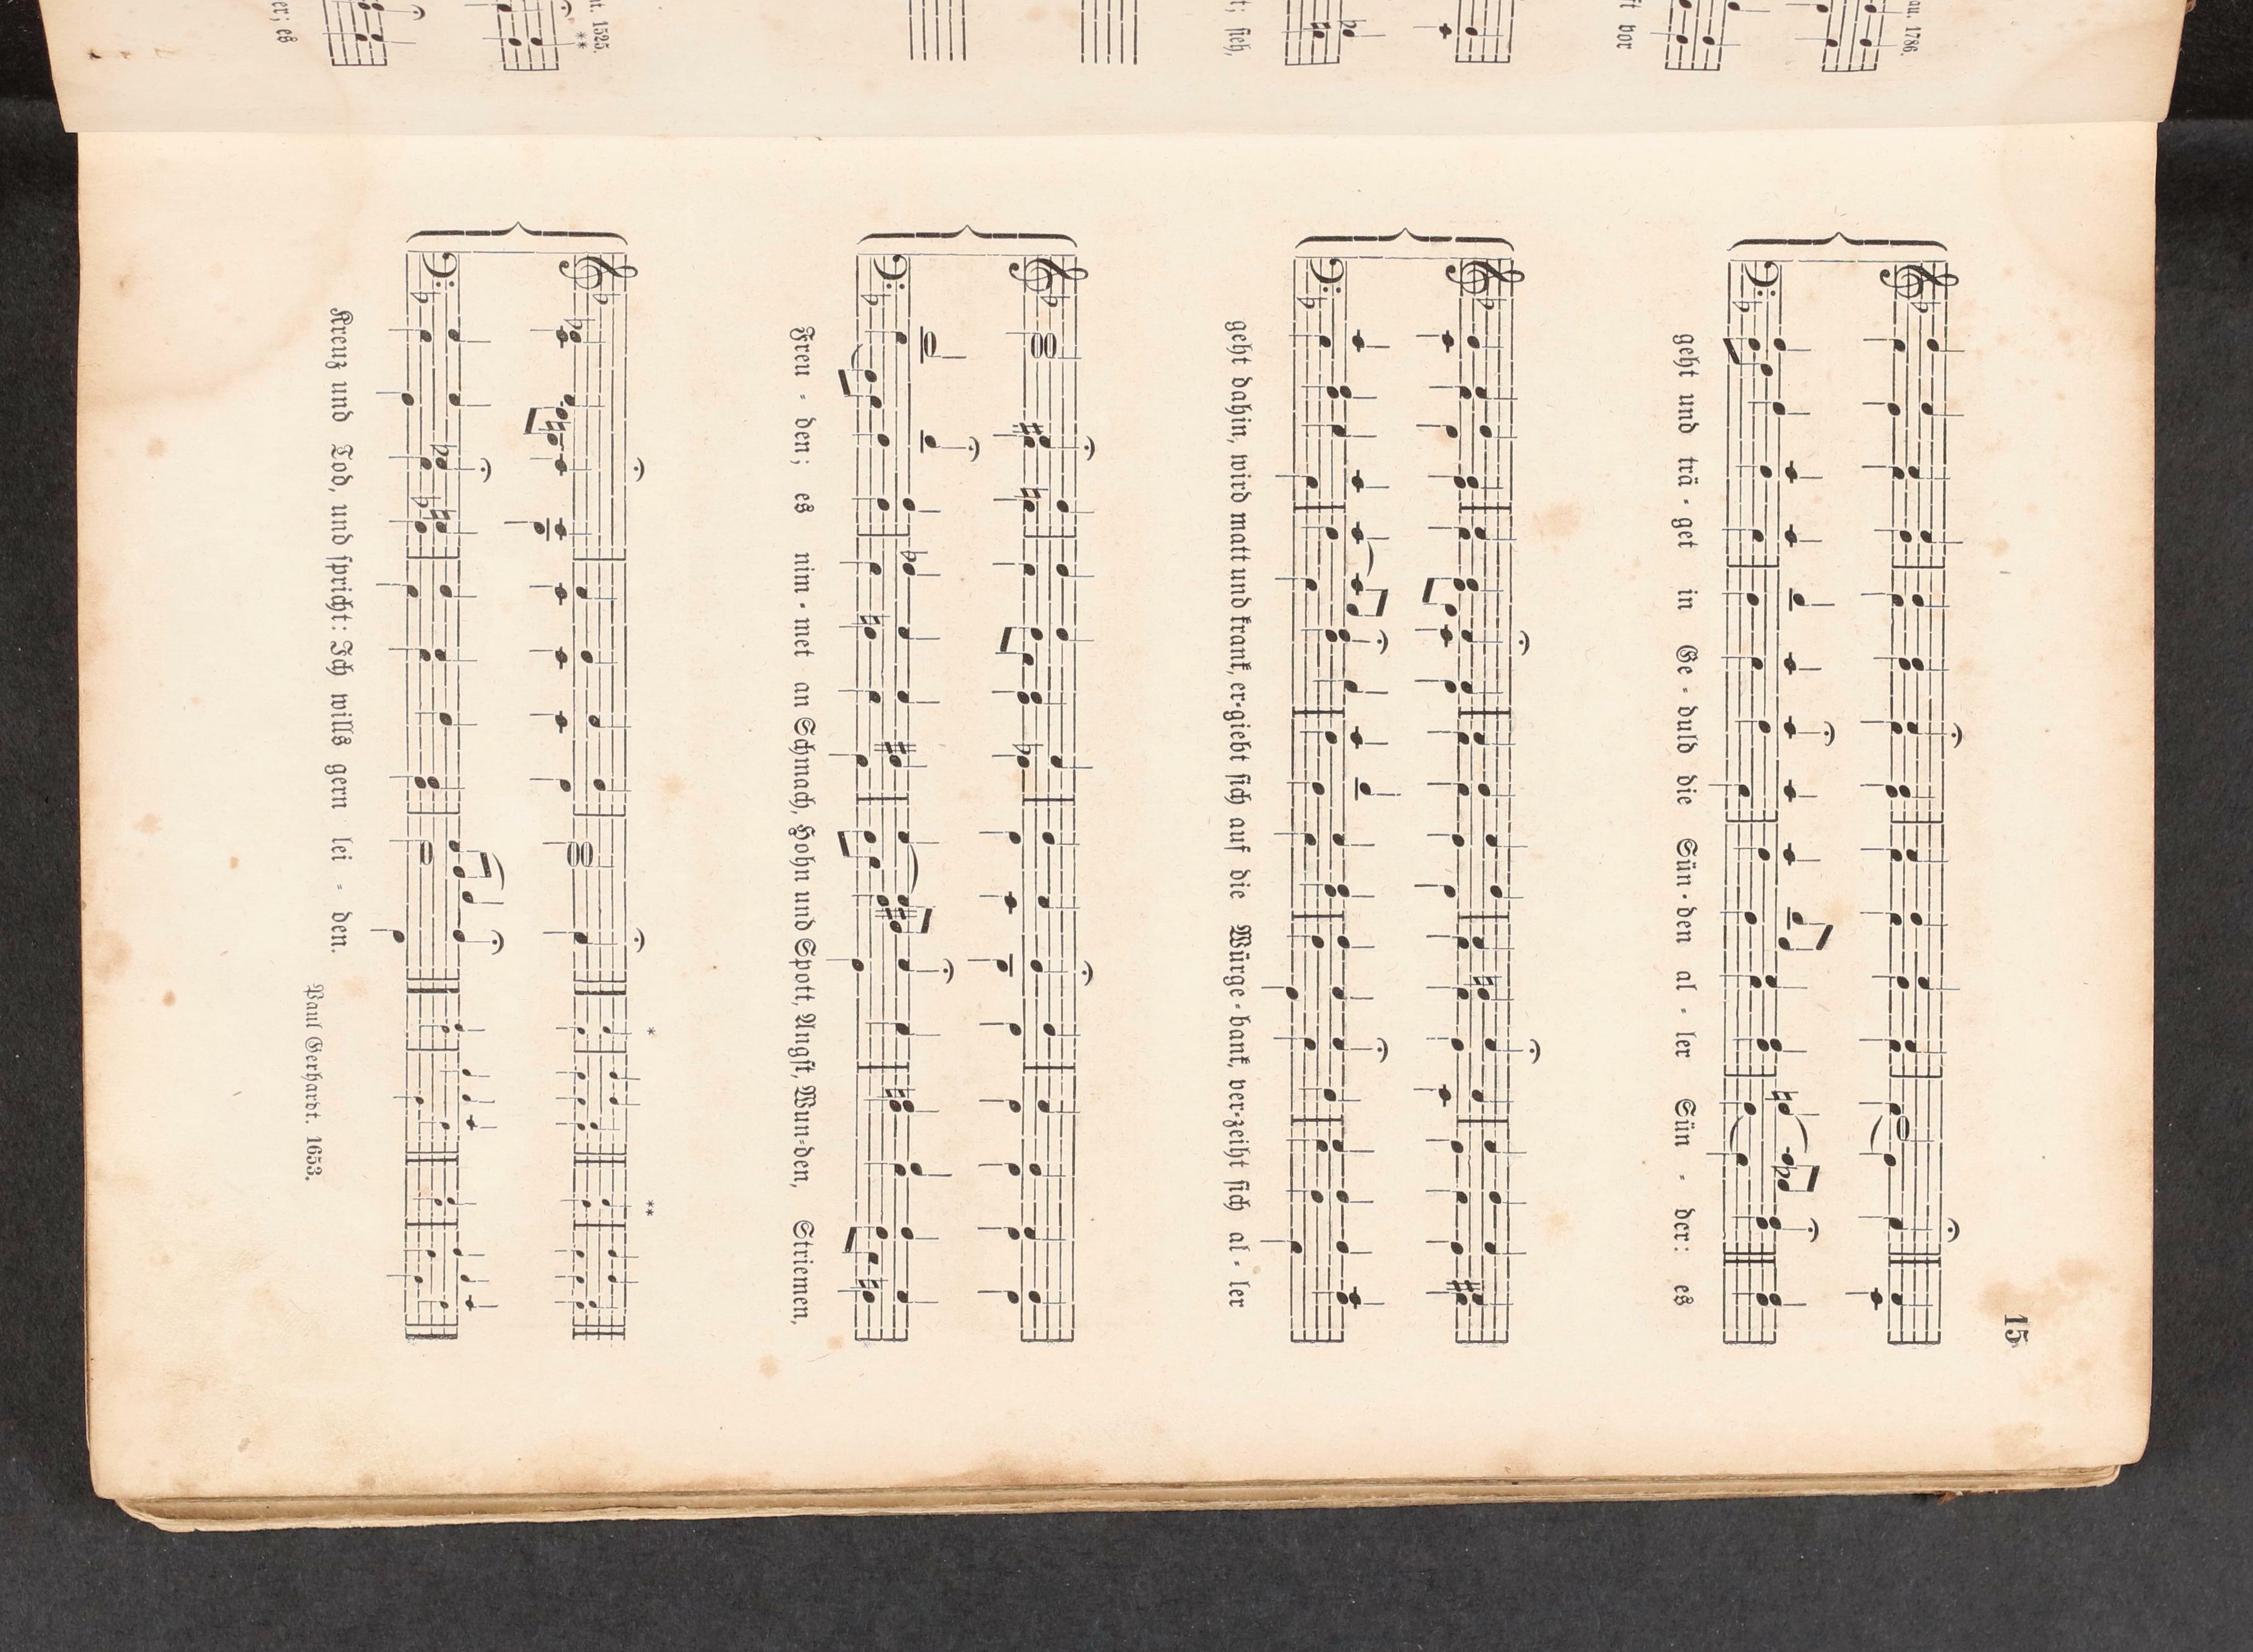 15
geht und trä - get in Ge - duld die Sün - den al - ler Sün - der: es
geht dahin, wird matt und krank, er-giebt sich auf die Würge - bank, ver-zeiht sich al - ler
Freu - den; es nim - met an Schmach, Hohn und Spott, Angst, Wun-den, Striemen,
* **
Kreuz und Tod, und spricht: Ich wills gern lei - den.
Paul Gerhardt. 1653.
1786.
ft vor
t; sieh,
1525.
**
er; es